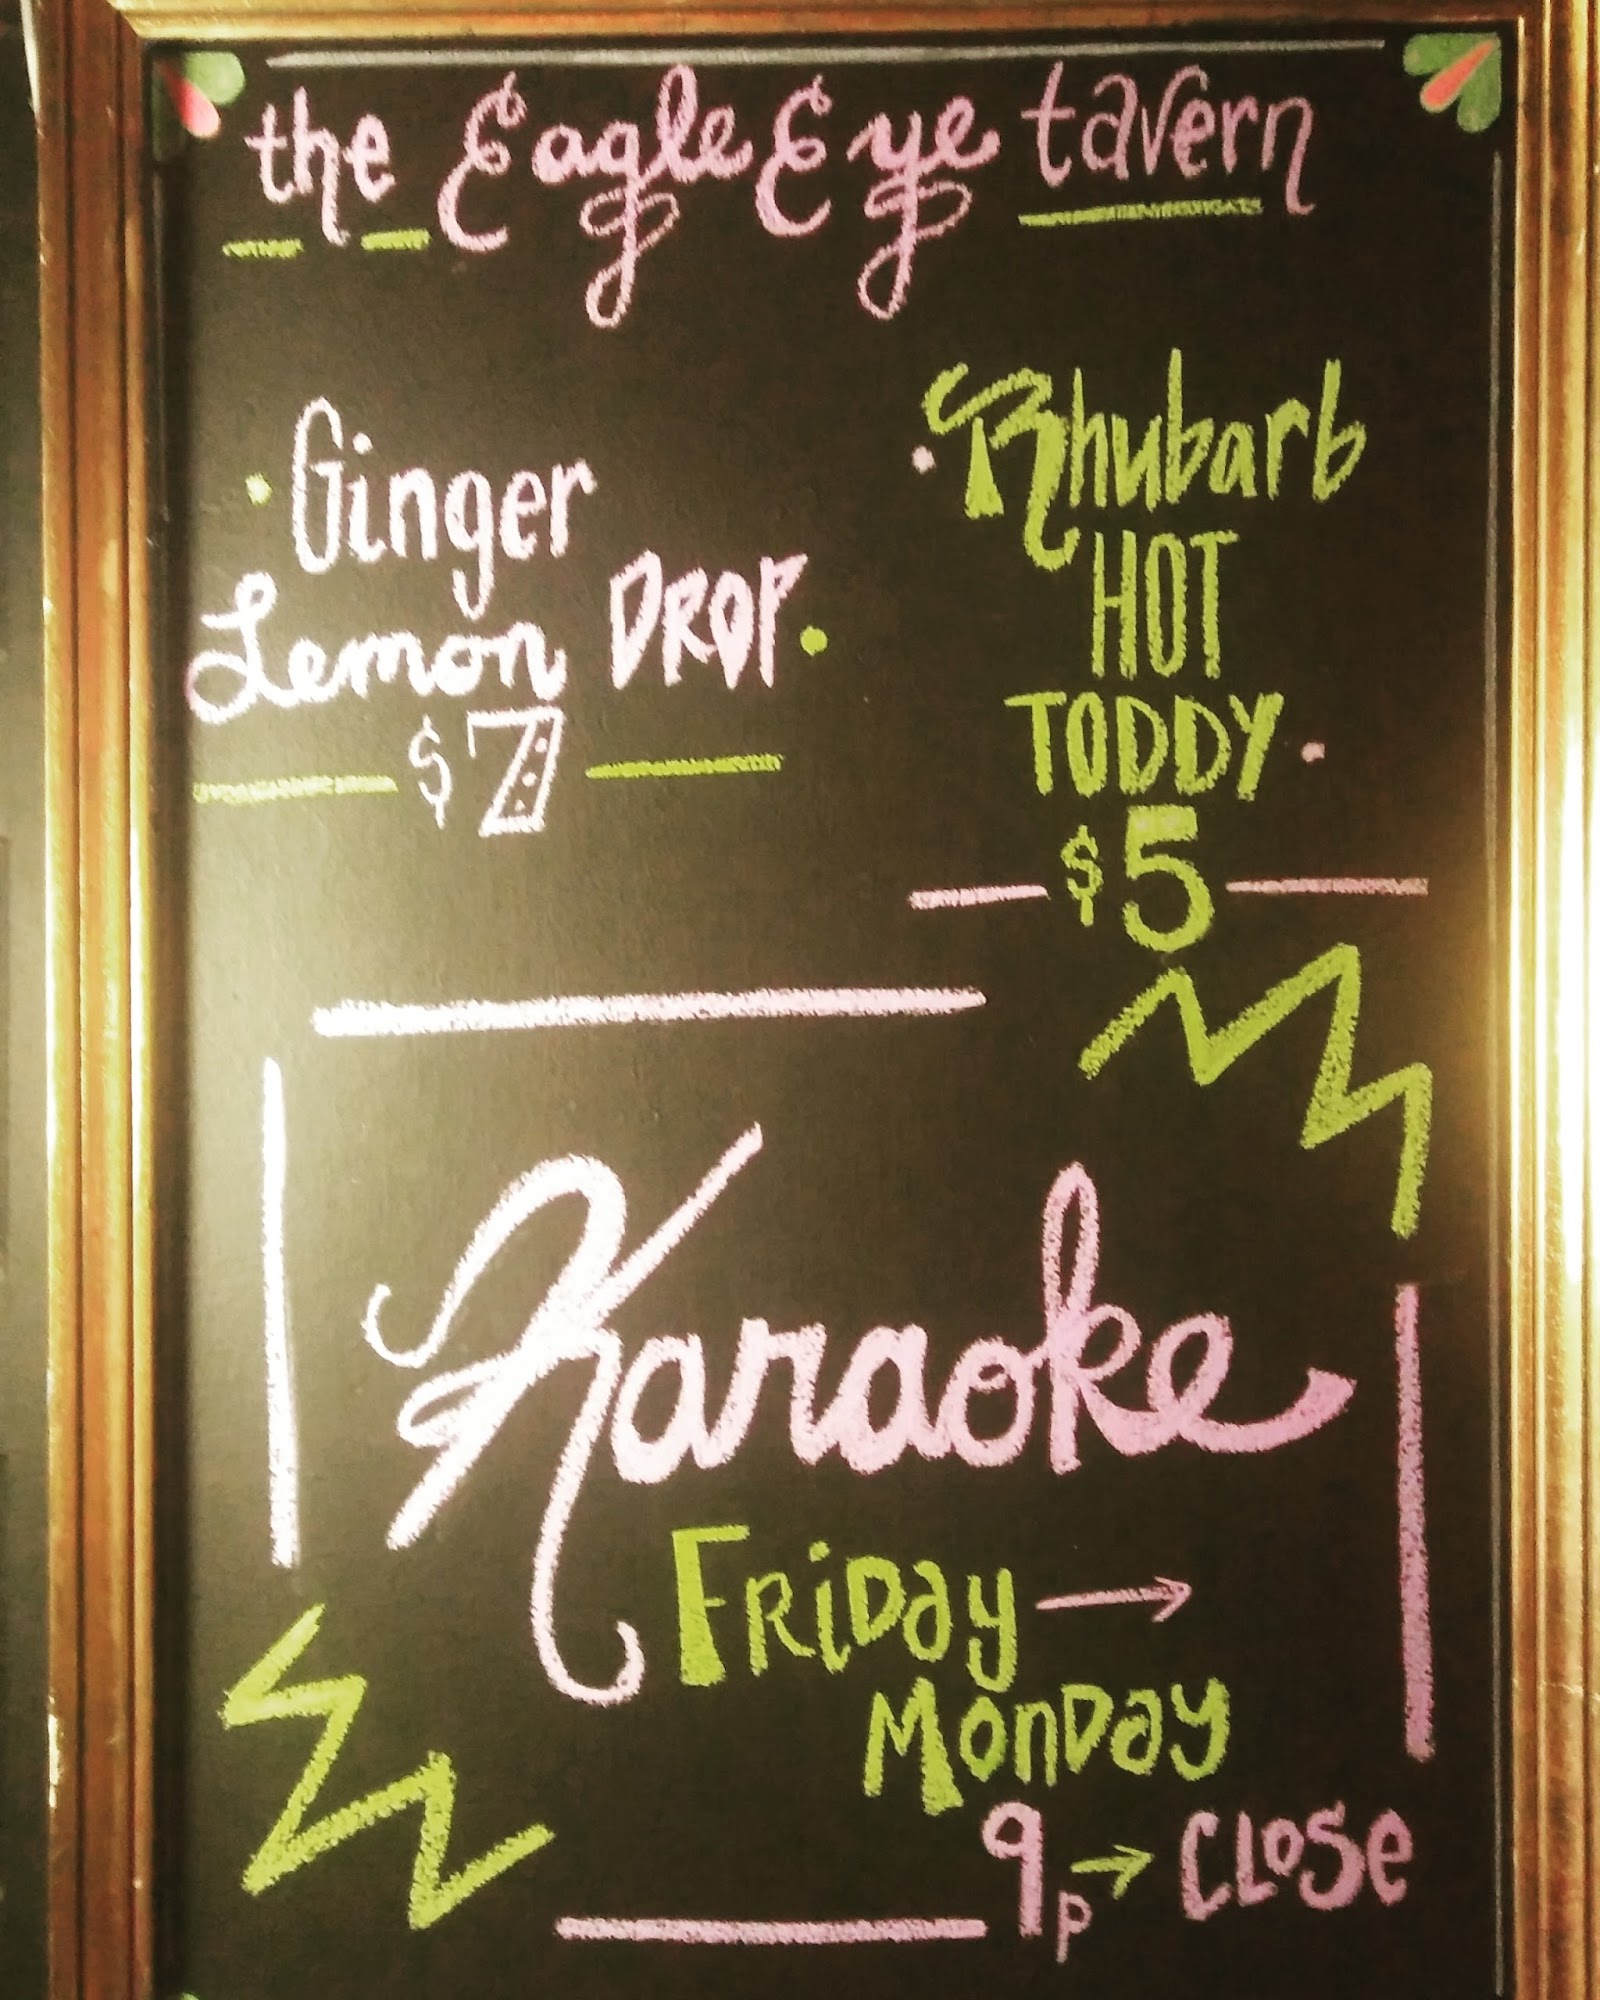 the Eagle Eye tavern
Ginger
Lemon DROP
$7
Rhubarb
HOT
TODDY
$5
Karaoke
FRiDay →
MonDay
9p → CLoSe